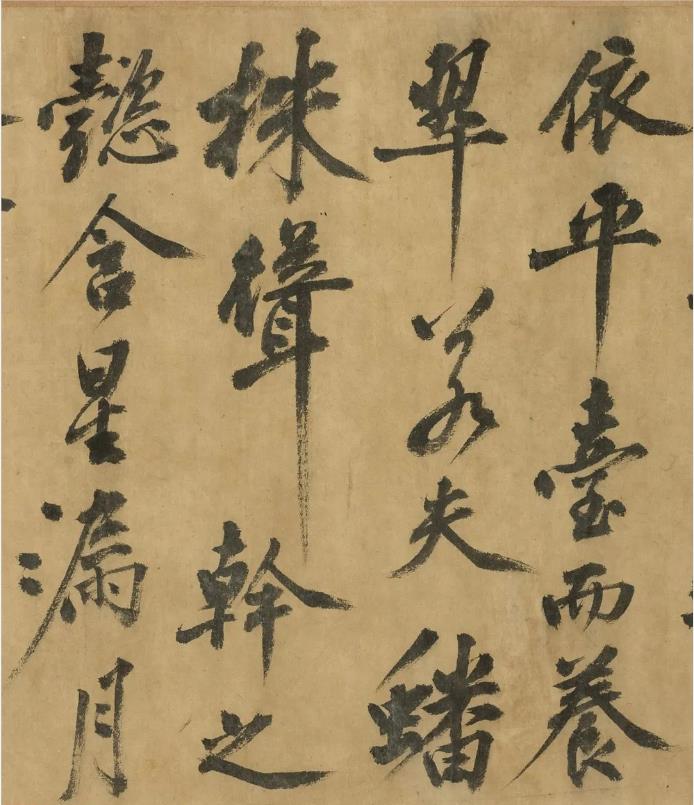 依平臺而養
翠若夫蟠
株聳幹之
懿含星漏月